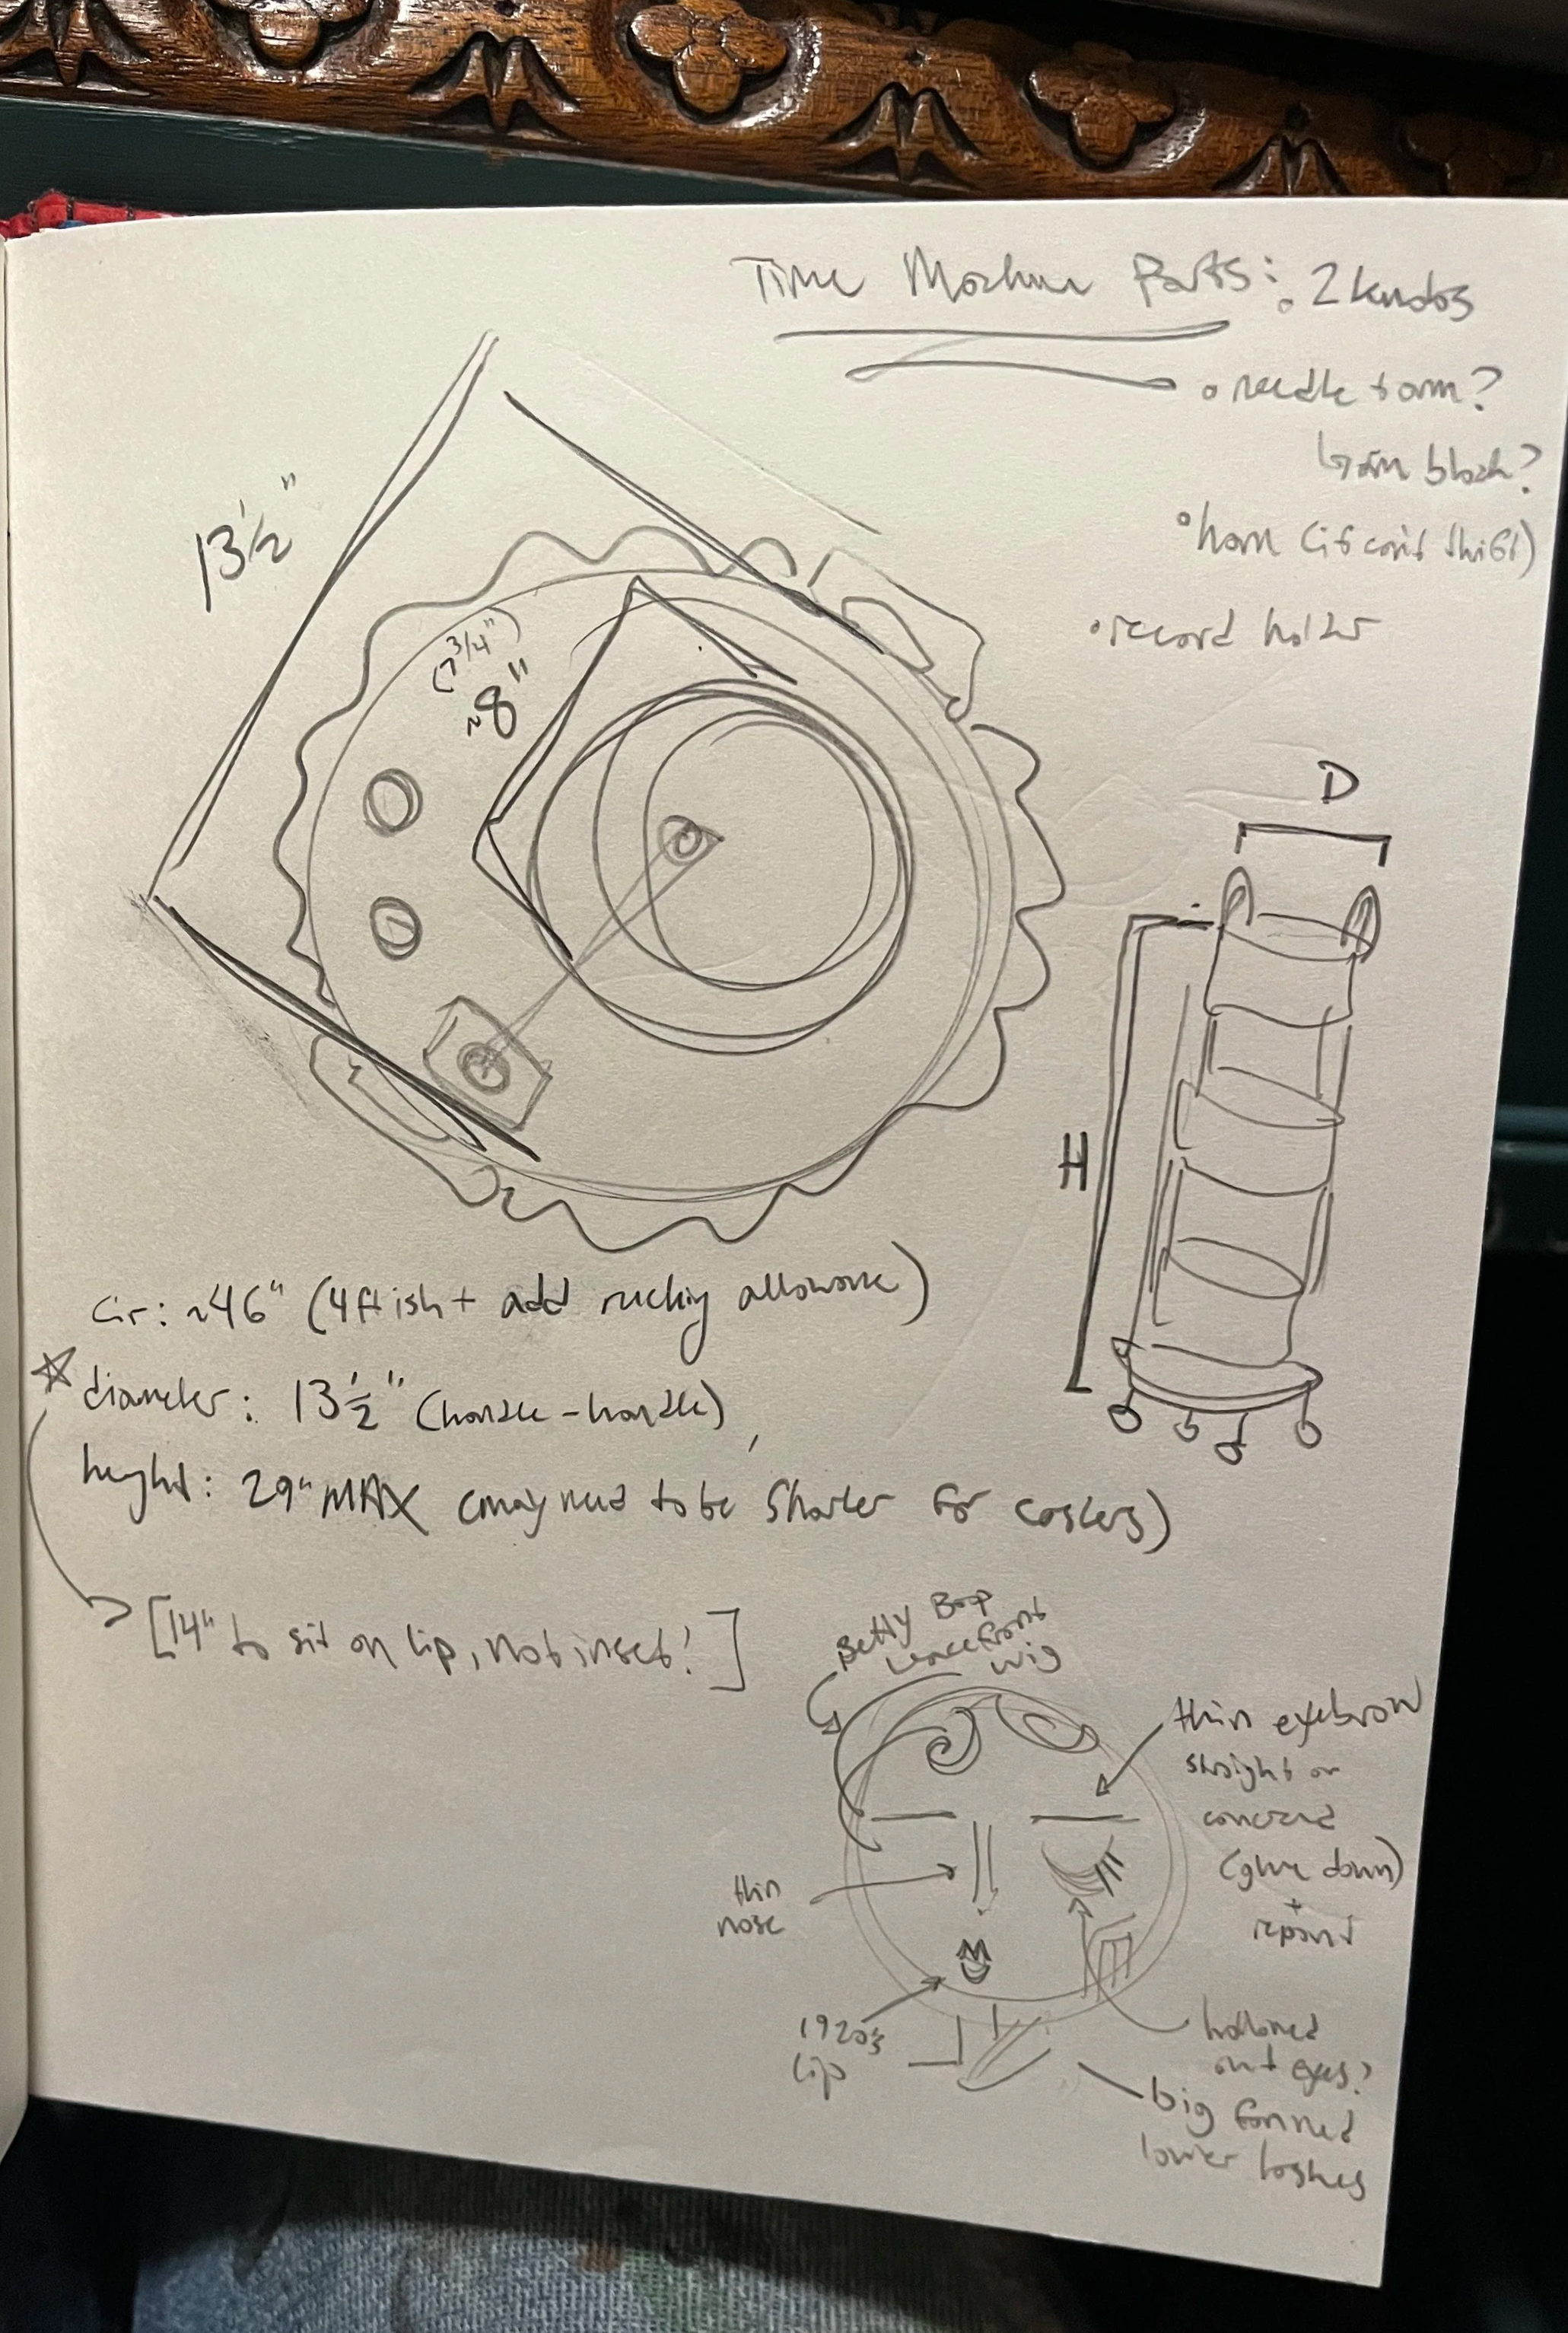 Time Machine Parts: • 2 knobs
• needle + arm?
↳ arm block?
• horn (if can't thift)
• record holder
13 1/2"
(7 3/4")
~8"
D
H
Cir: ~46" (4ft ish + add ruching allowance)
☆ diameter: 13 1/2" (handle-handle)
height: 29" MAX (may need to be shorter for casters)
→ [14" to sit on lip, not inset!]
Betty Boop
lace front
wig
thin eyebrow
straight or
concerned
(glue down)
+
repaint
thin
nose
1920's
lip
hollowed
out eyes?
big fanned
lower lashes